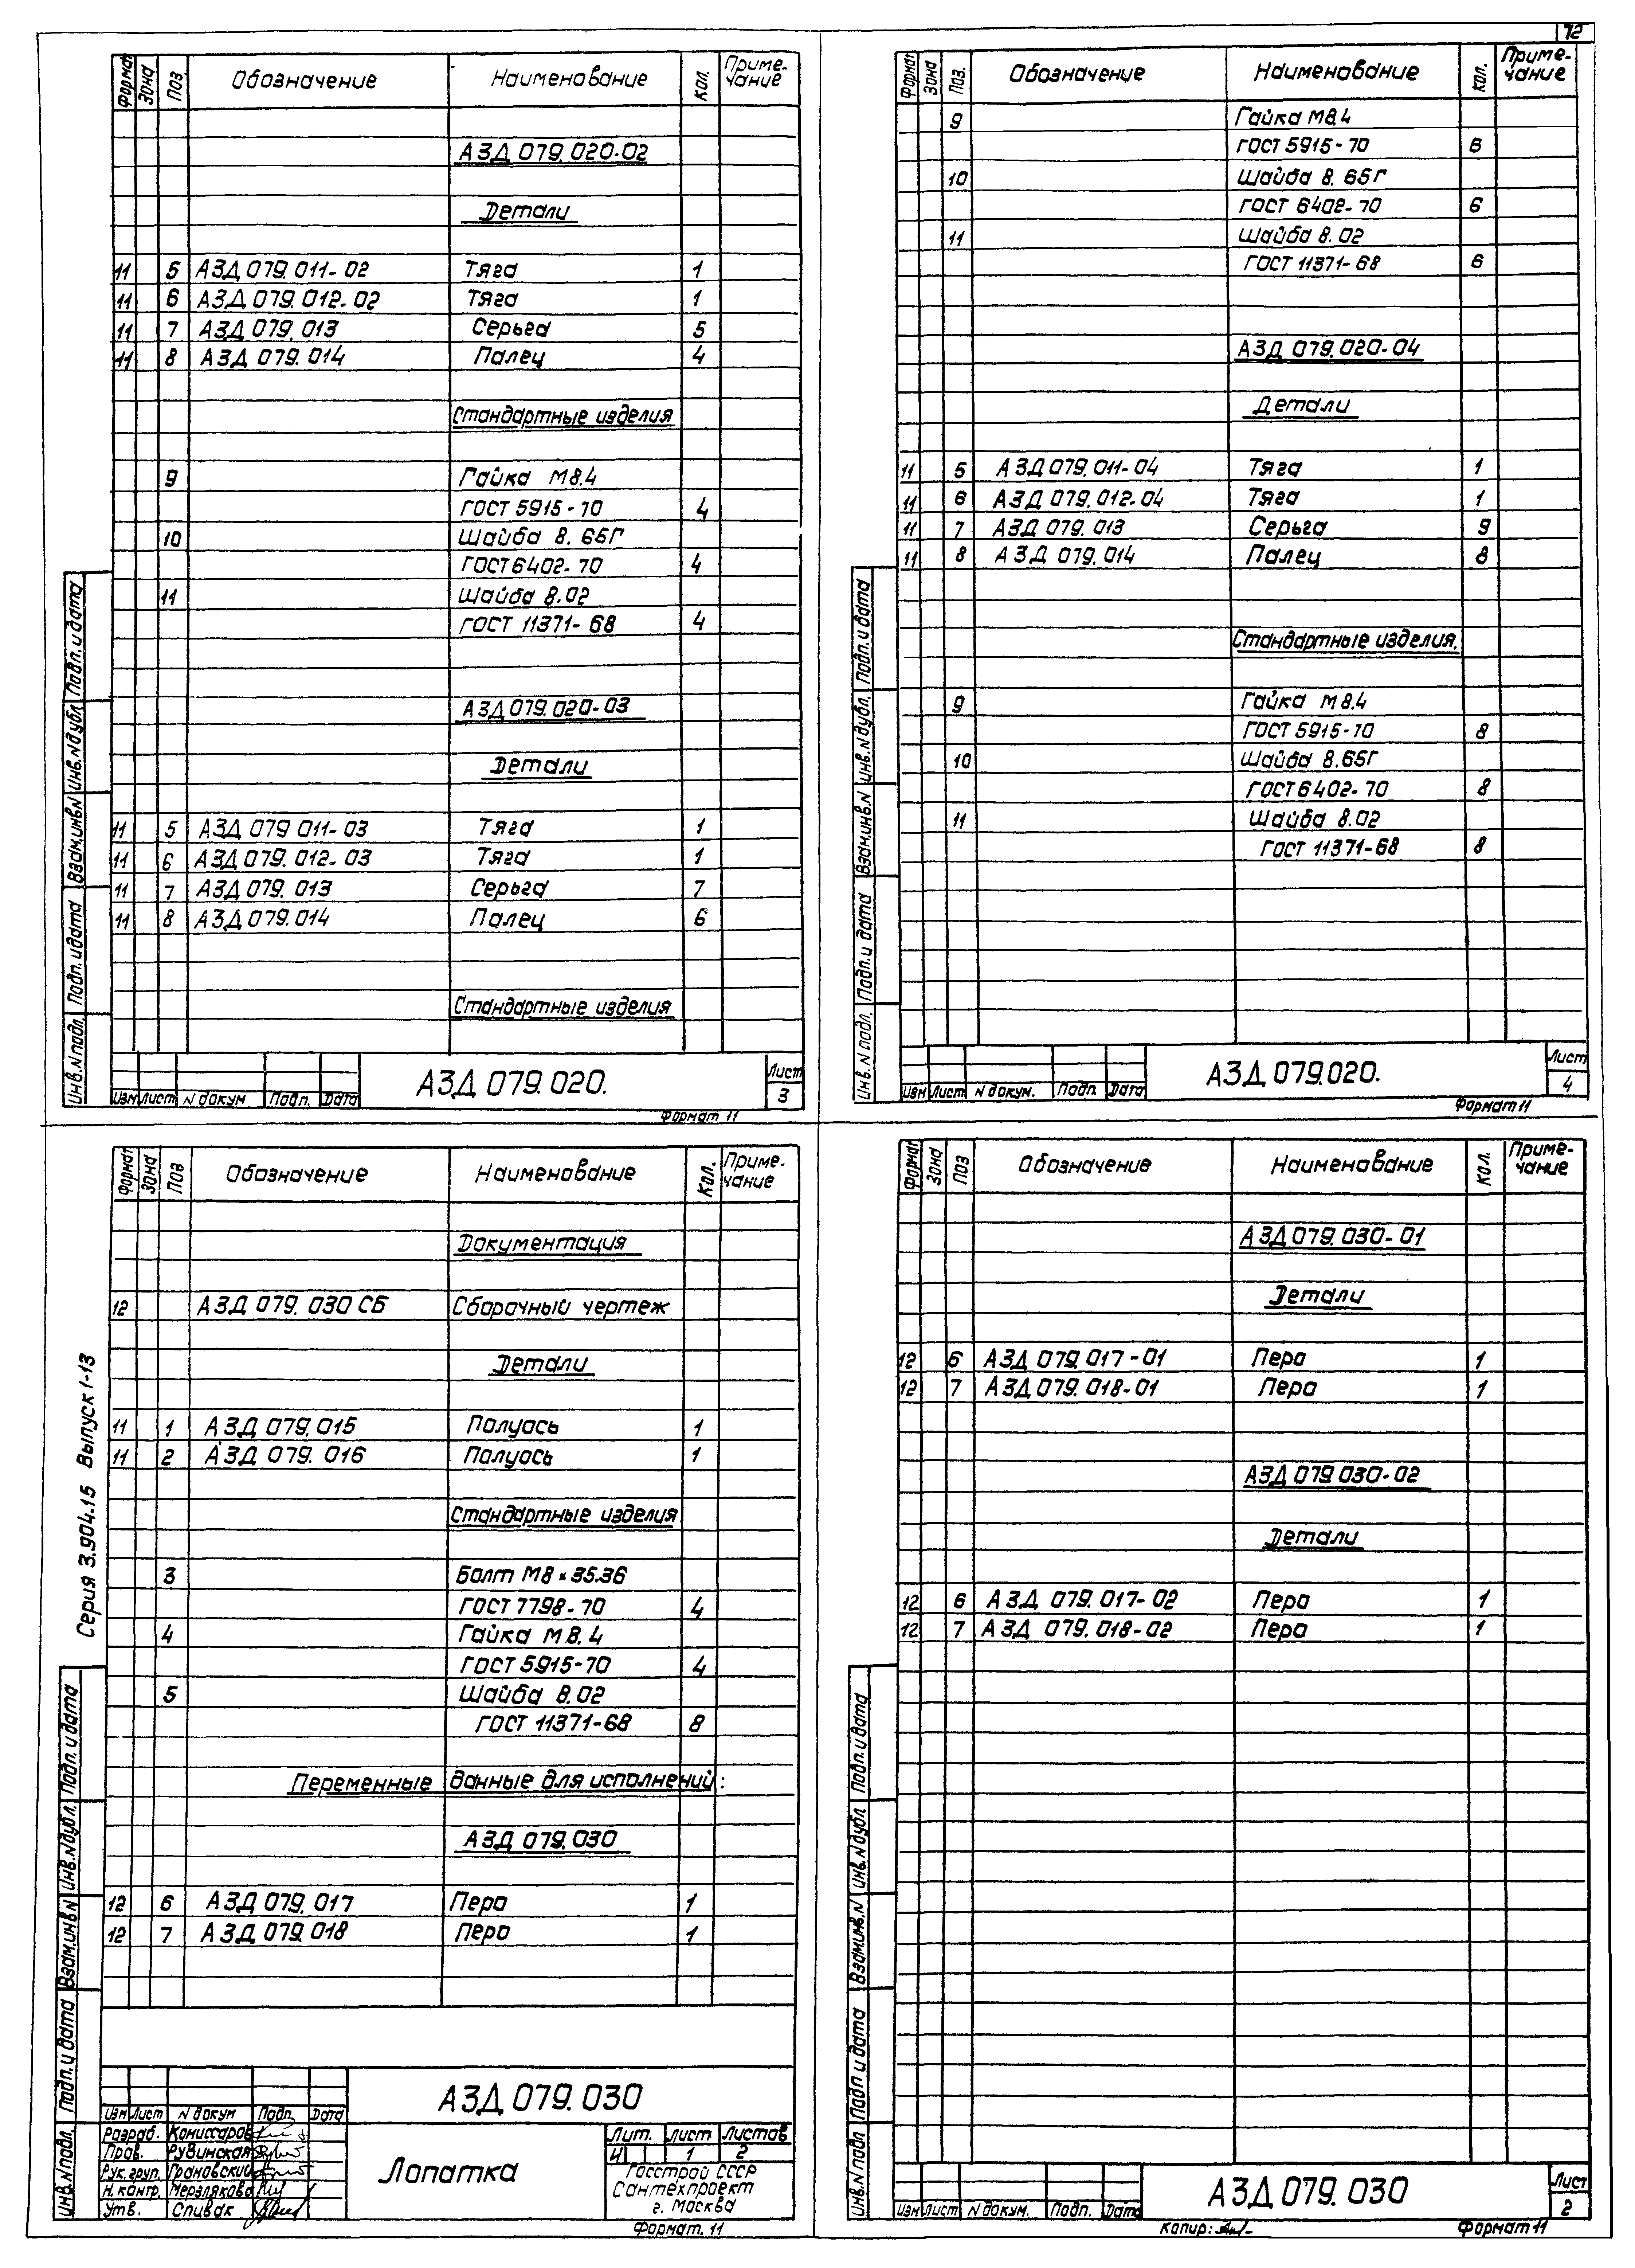 12
Формат Зона Поз. Обозначение Наименование Кол. Приме-
чание
АЗД 079.020-02
Детали
11 5 АЗД 079.011-02 Тяга 1
11 6 АЗД 079.012-02 Тяга 1
11 7 АЗД 079.013 Серьга 5
11 8 АЗД 079.014 Палец 4
Стандартные изделия
9 Гайка М8.4
ГОСТ 5915-70 4
10 Шайба 8.65Г
ГОСТ 6402-70 4
11 Шайба 8.02
ГОСТ 11371-68 4
АЗД 079.020-03
Детали
11 5 АЗД 079 011-03 Тяга 1
11 6 АЗД 079.012-03 Тяга 1
11 7 АЗД 079.013 Серьга 7
11 8 АЗД 079.014 Палец 6
Стандартные изделия
Инв.N подл. Подп. и дата Взам.инв.N Инв.N дубл. Подп. и дата
Изм Лист N докум Подп. Дата
АЗД 079.020.
Лист
3
Формат 11
Формат Зона Поз. Обозначение Наименование Кол. Приме-
чание
9 Гайка М8.4
ГОСТ 5915-70 6
10 Шайба 8.65Г
ГОСТ 6402-70 6
11 Шайба 8.02
ГОСТ 11371-68 6
АЗД 079.020-04
Детали
11 5 АЗД 079.011-04 Тяга 1
11 6 АЗД 079.012-04 Тяга 1
11 7 АЗД 079.013 Серьга 9
11 8 АЗД 079.014 Палец 8
Стандартные изделия.
9 Гайка М8.4
ГОСТ 5915-70 8
10 Шайба 8.65Г
ГОСТ 6402-70 8
11 Шайба 8.02
ГОСТ 11371-68 8
Инв.N подл. Подп. и дата Взам.инв.N Инв.N дубл. Подп. и дата
Изм Лист N докум. Подп. Дата
АЗД 079.020.
Лист
4
Формат 11
Серия 3.904.15 Выпуск 1-13
Формат Зона Поз Обозначение Наименование Кол. Приме-
чание
Документация
12 АЗД 079.030 СБ Сборочный чертеж
Детали
11 1 АЗД 079.015 Полуось 1
11 2 АЗД 079.016 Полуось 1
Стандартные изделия
3 Болт М8×35.36
ГОСТ 7798-70 4
4 Гайка М8.4
ГОСТ 5915-70 4
5 Шайба 8.02
ГОСТ 11371-68 8
Переменные данные для исполнений:
АЗД 079.030
12 6 АЗД 079.017 Перо 1
12 7 АЗД 079.018 Перо 1
Инв.N подл. Подп. и дата Взам.инв.N Инв.N дубл. Подп. и дата
АЗД 079.030
Изм Лист N докум Подп. Дата
Разраб. Комиссаров
Пров. Рувинская
Рук.груп. Грановский
Н. контр. Мерзлякова
Утв. Спивак
Лопатка
Лит. Лист Листов
И 1 2
Госстрой СССР
Сантехпроект
г. Москва
Формат. 11
Формат Зона Поз Обозначение Наименование Кол. Приме-
чание
АЗД 079.030-01
Детали
12 6 АЗД 079.017-01 Перо 1
12 7 АЗД 079.018-01 Перо 1
АЗД 079.030-02
Детали
12 6 АЗД 079.017-02 Перо 1
12 7 АЗД 079.018-02 Перо 1
Инв.N подл Подп и дата Взам.инв.N Инв.N дубл Подп. и дата
Изм Лист N докум. Подп. Дата
АЗД 079.030
Лист
2
Копир:
Формат 11